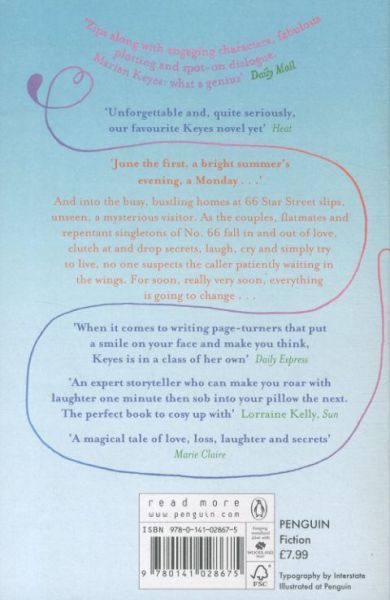 'Zips along with engaging characters, fabulous
plotting and spot-on dialogue.
Marian Keyes: what a genius' Daily Mail
'Unforgettable and, quite seriously,
our favourite Keyes novel yet' Heat
'June the first, a bright summer's
evening, a Monday . . .'
And into the busy, bustling homes at 66 Star Street slips,
unseen, a mysterious visitor. As the couples, flatmates and
repentant singletons of No. 66 fall in and out of love,
clutch at and drop secrets, laugh, cry and simply try
to live, no one suspects the caller patiently waiting in
the wings. For soon, really very soon, everything
is going to change . . .
'When it comes to writing page-turners that put
a smile on your face and make you think,
Keyes is in a class of her own' Daily Express
'An expert storyteller who can make you roar with
laughter one minute then sob into your pillow the next.
The perfect book to cosy up with' Lorraine Kelly, Sun
'A magical tale of love, loss, laughter and secrets'
Marie Claire
read more
www.penguin.com
ISBN 978-0-141-02867-5
9 780141 028675
WOODLAND
FSC
PENGUIN
Fiction
£7.99
Typography by Interstate
Illustrated at Penguin